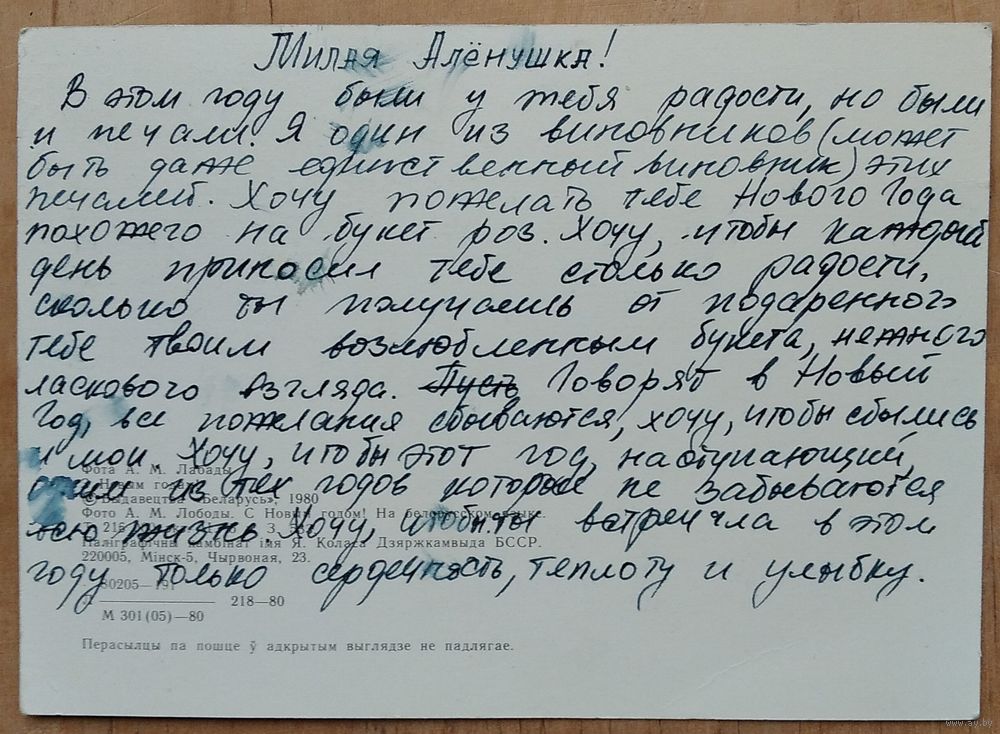 Милая Алёнушка!
В этом году были у тебя радости, но были
и печали. Я один из виновников (может
быть даже единственный виновник) этих
печалей. Хочу пожелать тебе Нового Года
похожего на букет роз. Хочу, чтобы каждый
день приносил тебе столько радости,
сколько ты получаешь от подаренного
тебе твоим возлюбленным букета, нежного
ласкового взгляда. Пусть Говорят в Новый
Год, все пожелания сбываются, хочу, чтобы сбылись
и мои Хочу, чтобы этот год, наступающий,
Фота А. М. Лабады
Новым годам
из тех годов которые не забываются
© Выдавецтва «Беларусь», 1980
Фото А. М. Лободы. С Новым годом! На белорусском языке.
всю жизнь. Хочу, чтобы ты встречала в этом
Паліграфічны камбінат імя Я. Коласа Дзяржкамвыда БССР.
220005, Мінск-5, Чырвоная, 23.
году только сердечность, теплоту и улыбку.
50205—191
218—80
М 301(05)—80
Перасылцы па пошце ў адкрытым выглядзе не падлягае.
www.ay.by